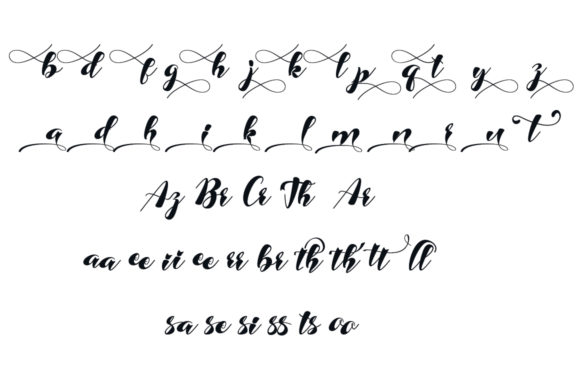 b d f g h j k l p q t y z
a d h i k l m n r u t
Az Br Cr Th Ar
aa ee ii ee rr br th th tt ll
sa se si ss ts oo